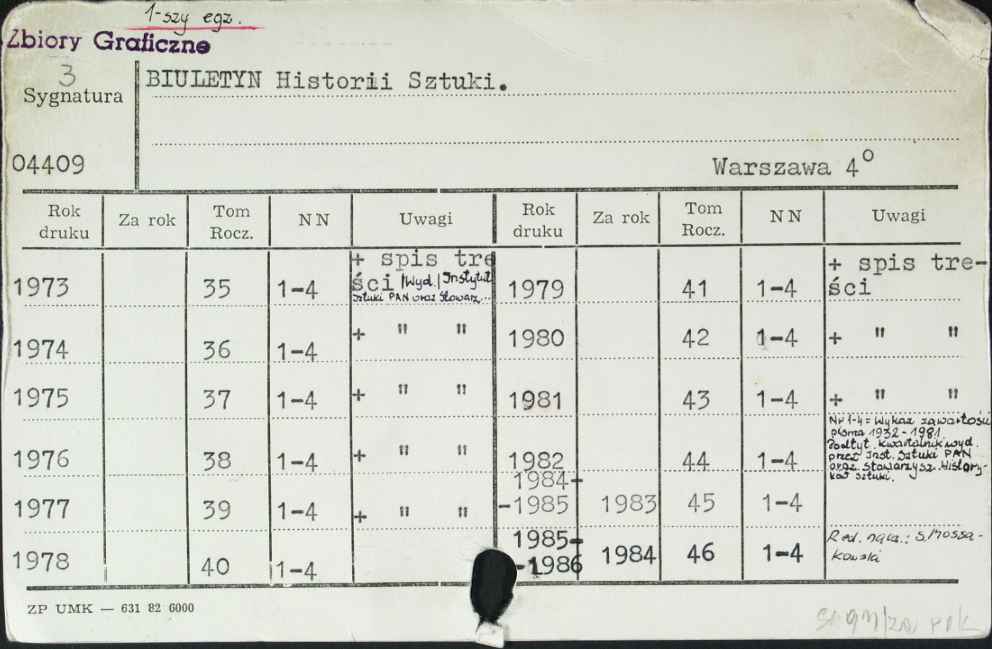 1-szy egz.
Zbiory Graficzne
3
Sygnatura
BIULETYN Historii Sztuki.
04409
Warszawa 4°
Rok druku Za rok Tom Rocz. NN Uwagi Rok druku Za rok Tom Rocz. NN Uwagi
1973 35 1-4 + spis tre
ści |Wyd.| Instytut
Sztuki PAN oraz Stowarz...
1979 41 1-4 + spis tre-
ści
1974 36 1-4 + " "
1980 42 1-4 + " "
1975 37 1-4 + " "
1981 43 1-4 + " "
1976 38 1-4 + " "
1982 44 1-4
Nr 1-4 = Wykaz zawartości
pisma 1932-1981.
Podtyt. kwartalnik wyd.
przez Inst. Sztuki PAN
oraz Stowarzysz. History-
ków Sztuki.
1977 39 1-4 + " "
1984-
-1985 1983 45 1-4
1978 40 1-4
1985-
-1986 1984 46 1-4
Red. nacz.: S. Mossa-
kowski
ZP UMK — 631 82 6000